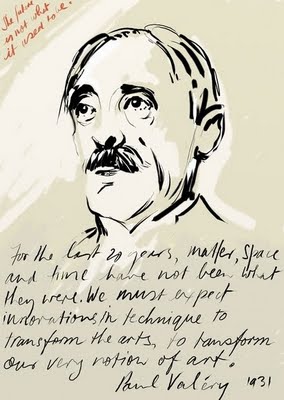 The future
is not what
it used to be.
For the last 20 years, matter, space
and time have not been what
they were. We must expect
innovations in technique to
transform the arts, to transform
our very notion of art.
Paul Valéry 1931